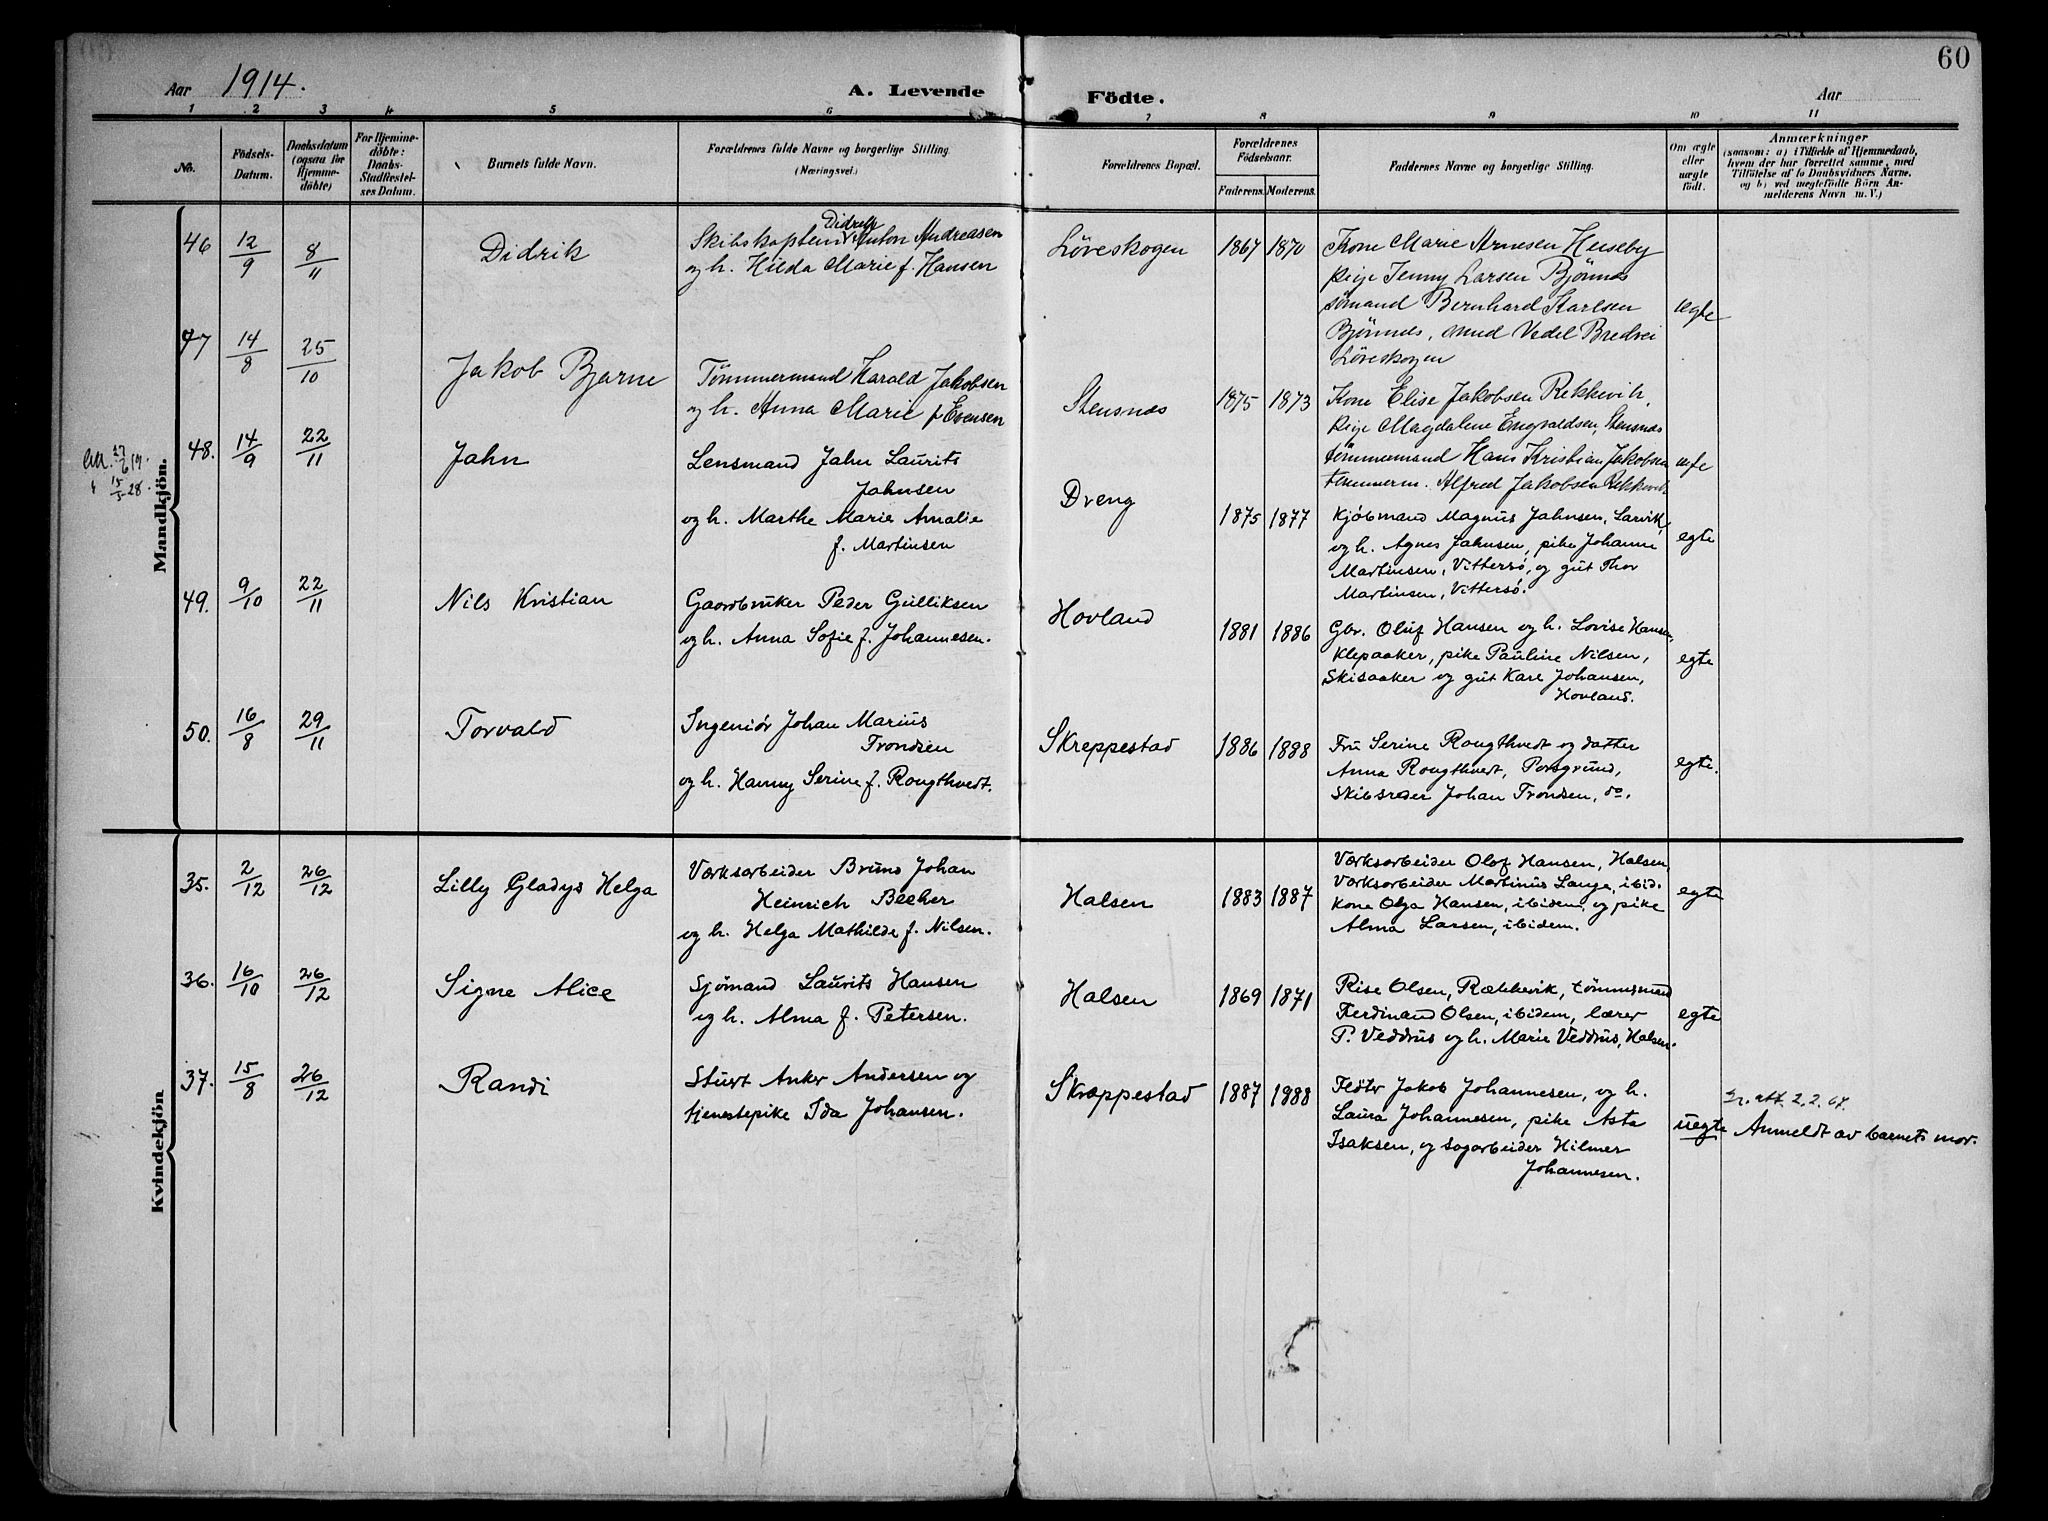 60
Aar 1914.
A. Levende Födte.
Aar
1 2 3 4 5 6 7 8 9 10 11
No.
Födsels-
Datum.
Daabsdatum
(ogsaa for
Hjemme-
döbte)
For Hjemme-
döbte:
Daabs-
Stadfæstel-
ses Datum.
Barnets fulde Navn.
Forældrenes fulde Navne og borgerlige Stilling.
(Næringsvei.)
Forældrenes Bopæl.
Forældrenes
Födselsaar.
Faderens. Moderens.
Faddernes Navne og borgerlige Stilling.
Om ægte
eller
uægte
födt.
Anmærkninger
(saasom: a) i Tilfælde af Hjemmedaab,
hvem der har forrettet samme, med
Tilföielse af to Daabsvidners Navne.
og b) ved uægtefödte Börn An-
melderens Navn m. V.)
Mandkjön.
46 12/9 8/11
Didrik
Didrik
Skibskaptein Anton Andreasen
og h. Hilda Marie f. Hansen
Löveskogen
1867 1870
Kone Marie Arnesen Huseby
Pige Jenny Larsen Bjönnes
sömand Bernhard Karlsen
Bjönnes, smed Vedel Bredvei
Löveskogen
ægte
47 14/8 25/10
Jakob Bjarne
Tømmermand Harald Jakobsen
og h. Anna Marie f Evensen
Stensnæs
1875 1873
Kone Elise Jakobsen Rekkevik,
Pige Magdalene Engvaldsen, Stensnæs
tömmermand Hans Kristian Jakobsen
tømmerm. Alfred Jakobsen Rekkevik
27/6 19.
15/5 28.
48. 14/9 22/11
Jahn
Lensmand Jahn Laurits
Jahnsen
og h. Marthe Marie Amalie
f. Martinsen
Dreng
1875 1877
Kjøbmand Magnus Jahnsen, Larvik,
og h. Agnes Jahnsen, pike Johanne
Martinsen, Vittersø, og gut Thor
Martinsen, Vittersø.
egte
49. 9/10 22/11
Nils Kristian
Gaardbruker Peder Gulliksen
og h. Anna Sofie f. Johannesen.
Hovland
1881 1886
Gbr. Oluf Hansen og h. Lovise Hansen,
Klepaaker, pike Pauline Nilsen,
Skisaaker og gut Kare Johansen,
Hovland.
egte
50. 16/8 29/11
Torvald
Ingeniør Johan Marius
Trondsen
og h. Hanny Serine f. Rougthvedt.
Skreppestad
1886 1888
Fru Serine Rougthvedt og datter
Anna Rougthvedt, Porsgrund,
Skibsreder Johan Trondsen, do.
egte.
Kvindekjön
35. 2/12 26/12
Lilly Gladys Helga
Værksarbeider Bruno Johan
Heinrich Becher
og h. Helga Mathilde f. Nilsen.
Halsen
1883 1887
Værksarbeider Olof Hansen, Halsen,
Værksarbeider Martinus Lange, ibid.
Kone Olga Hansen, ibidem, og pike
Alma Larsen, ibidem.
egte
36. 16/10 26/12
Signe Alice
Sjømand Laurits Hansen
og h. Alma f. Petersen.
Halsen
1869 1871
Rise Olsen, Rækkevik, tømmermand
Ferdinand Olsen, ibidem, lærer
P. Veddus og h. Marie Veddus, Halsen.
egte
37. 15/8 26/12
Randi
Stuert Anker Andersen og
tjenestepike Ida Johansen.
Skræppestad
1887 1988
Fløter Jakob Johannesen, og h.
Laura Johannesen, pike Asta
Isaksen, og sagarbeider Hilmer
Johannesen.
uegte
att. 2.2.67.
Anmeldt av barnets mor.